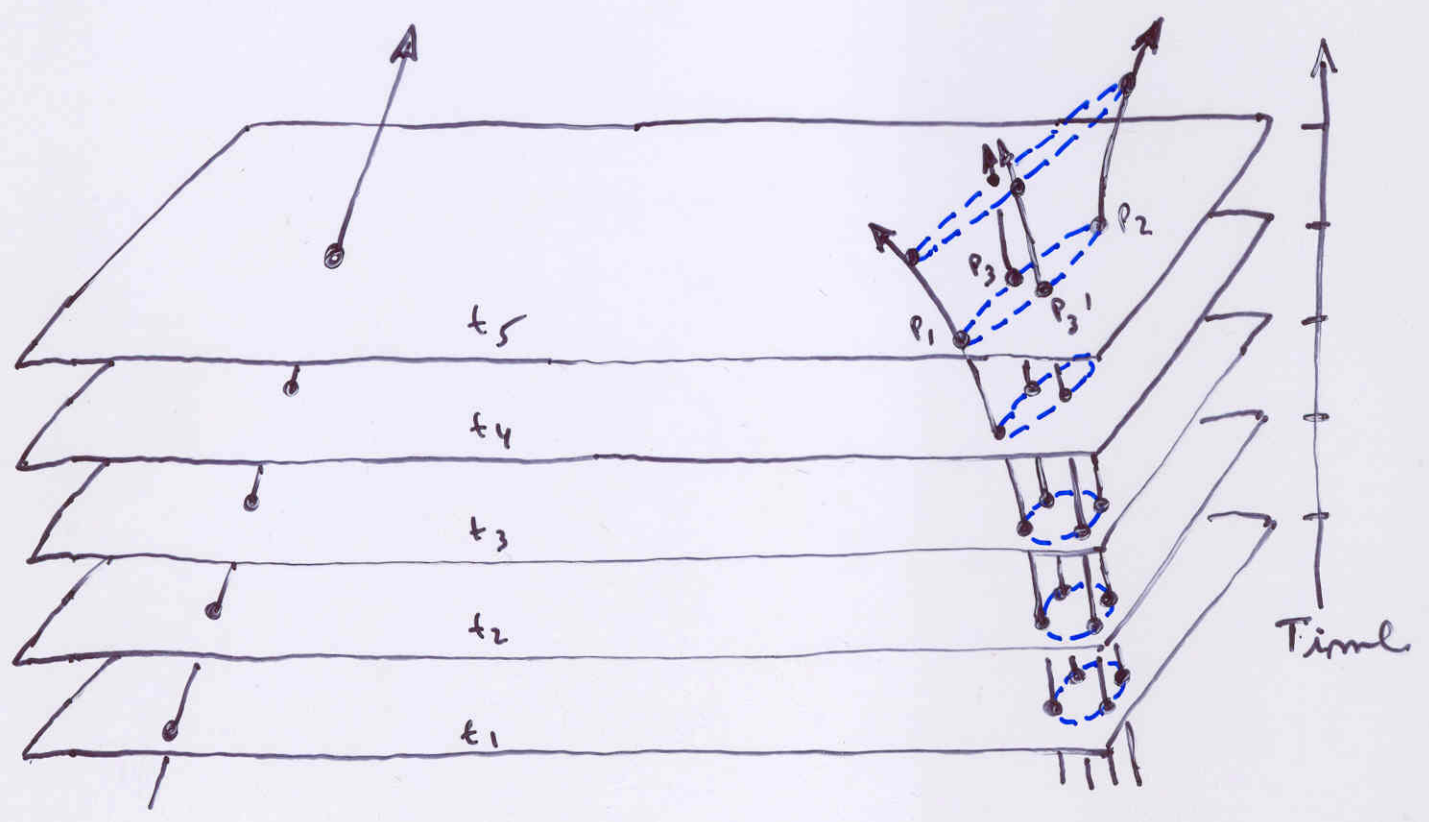 P2
P3
P3'
P1
t5
t4
t3
t2
Time
t1